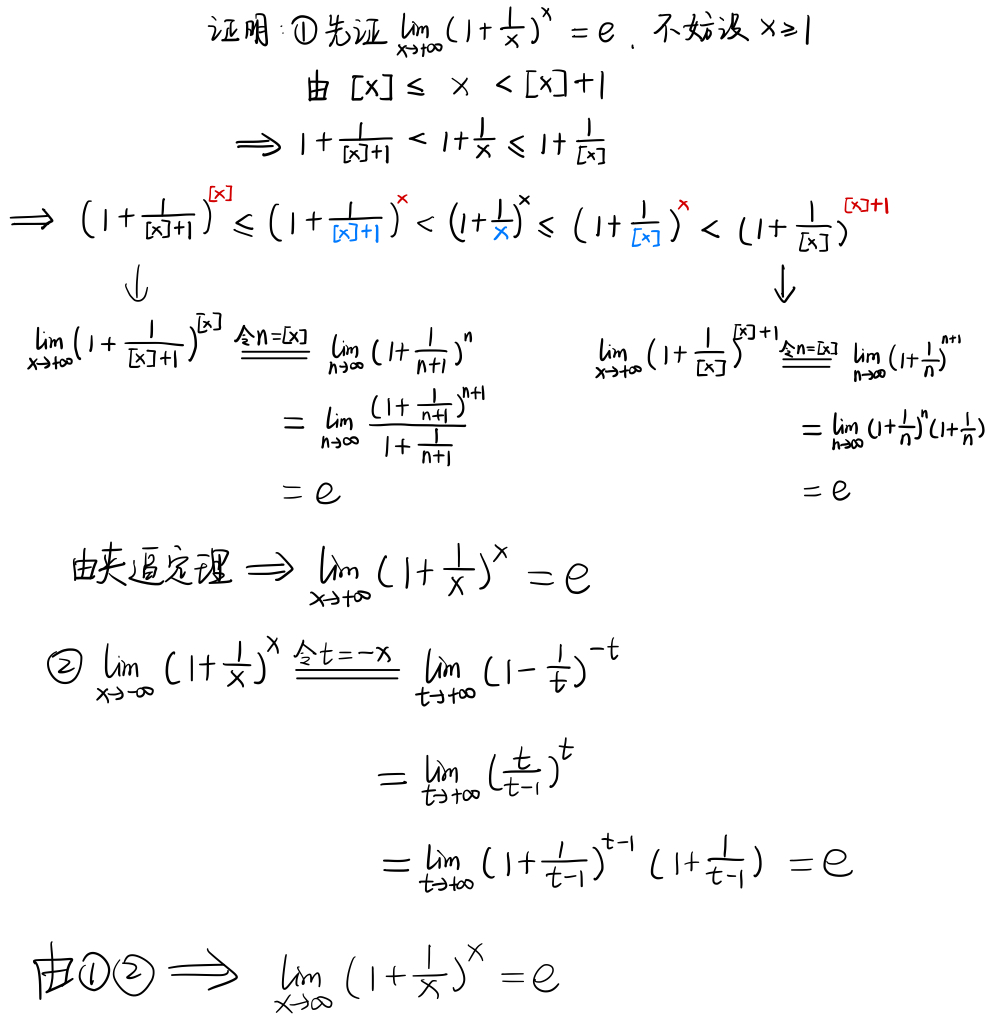 证明：① 先证 lim_{x→+∞} (1+1/x)^x = e . 不妨设 x≥1
由 [x] ≤ x < [x]+1
⟹ 1+1/([x]+1) < 1+1/x ≤ 1+1/[x]
⟹ (1+1/([x]+1))^[x] ≤ (1+1/([x]+1))^x < (1+1/x)^x ≤ (1+1/[x])^x < (1+1/[x])^([x]+1)
↓ ↓
lim_{x→+∞} (1+1/([x]+1))^[x] ==令n=[x]== lim_{n→∞} (1+1/(n+1))^n
= lim_{n→∞} (1+1/(n+1))^(n+1) / (1+1/(n+1))
= e
lim_{x→+∞} (1+1/[x])^([x]+1) ==令n=[x]== lim_{n→∞} (1+1/n)^(n+1)
= lim_{n→∞} (1+1/n)^n (1+1/n)
= e
由夹逼定理 ⟹ lim_{x→+∞} (1+1/x)^x = e
② lim_{x→-∞} (1+1/x)^x ==令t=-x== lim_{t→+∞} (1-1/t)^(-t)
= lim_{t→+∞} (t/(t-1))^t
= lim_{t→+∞} (1+1/(t-1))^(t-1) (1+1/(t-1)) = e
由①② ⟹ lim_{x→∞} (1+1/x)^x = e